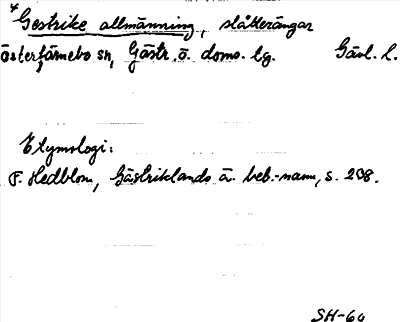 * Gestrike allmänning, slåtterängar
Österfärnebo sn, Gästr. ö. doms. tg. Gävl. l.
Etymologi:
F. Hedblom, Gästriklands ä. beb.-namn, s. 208.
SH-60